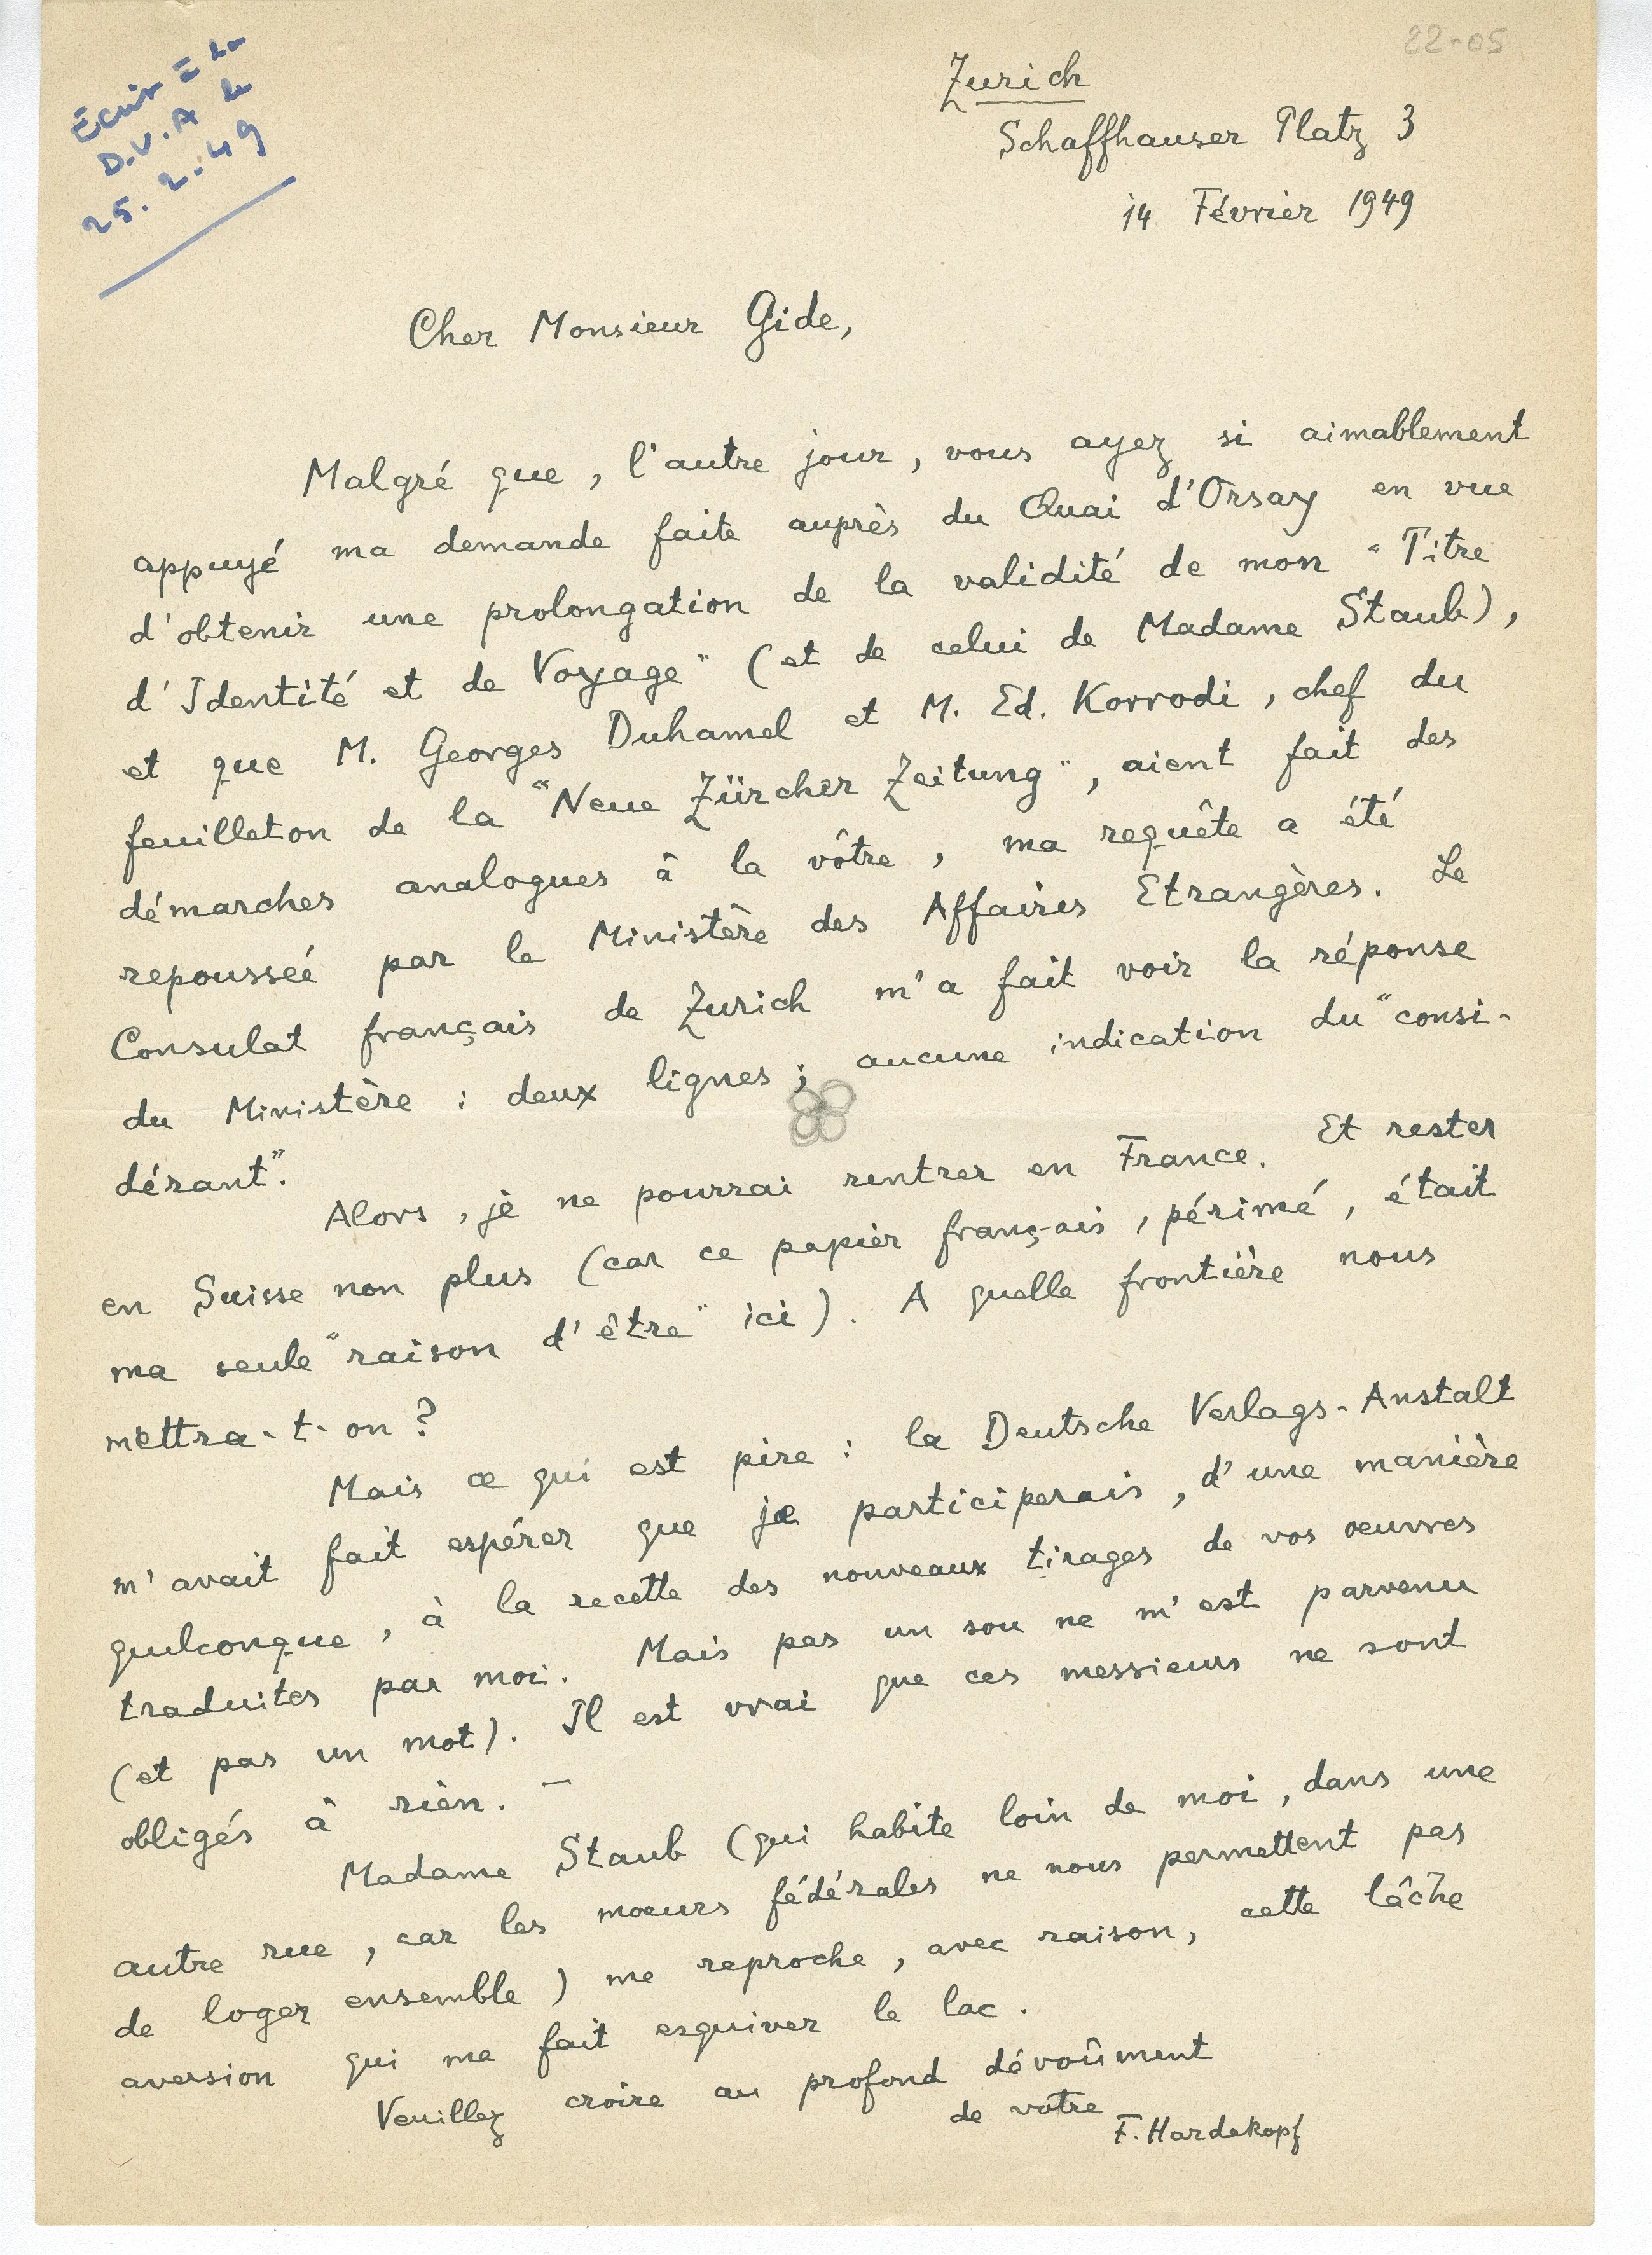 22-05
Ecrit à la
D.V.A le
25.2.49
Zurich
Schaffhauser Platz 3
14 Février 1949
Cher Monsieur Gide,
Malgré que, l'autre jour, vous ayez si aimablement
appuyé ma demande faite auprès du Quai d'Orsay en vue
d'obtenir une prolongation de la validité de mon "Titre
d'Identité et de Voyage" (et de celui de Madame Staub),
et que M. Georges Duhamel et M. Ed. Korrodi, chef du
feuilleton de la "Neue Zürcher Zeitung", aient fait des
démarches analogues à la vôtre, ma requête a été
repousseé par le Ministère des Affaires Etrangères. Le
Consulat français de Zurich m'a fait voir la réponse
du Ministère : deux lignes ; aucune indication du "consi-
dérant".
Alors, je ne pourrai rentrer en France. Et rester
en Suisse non plus (car ce papier français, périmé, était
ma seule "raison d'être" ici). A quelle frontière nous
mettra-t-on ?
Mais ce qui est pire : la Deutsche Verlags-Anstalt
m'avait fait espérer que je participerais, d'une manière
quelconque, à la recette des nouveaux tirages de vos oeuvres
traduites par moi. Mais pas un sou ne m'est parvenu
(et pas un mot). Il est vrai que ces messieurs ne sont
obligés à rien. —
Madame Staub (qui habite loin de moi, dans une
autre rue, car les moeurs fédérales ne nous permettent pas
de loger ensemble) me reproche, avec raison, cette lâche
aversion qui me fait esquiver le lac.
Veuillez croire au profond dévoûment
de votre
F. Hardekopf